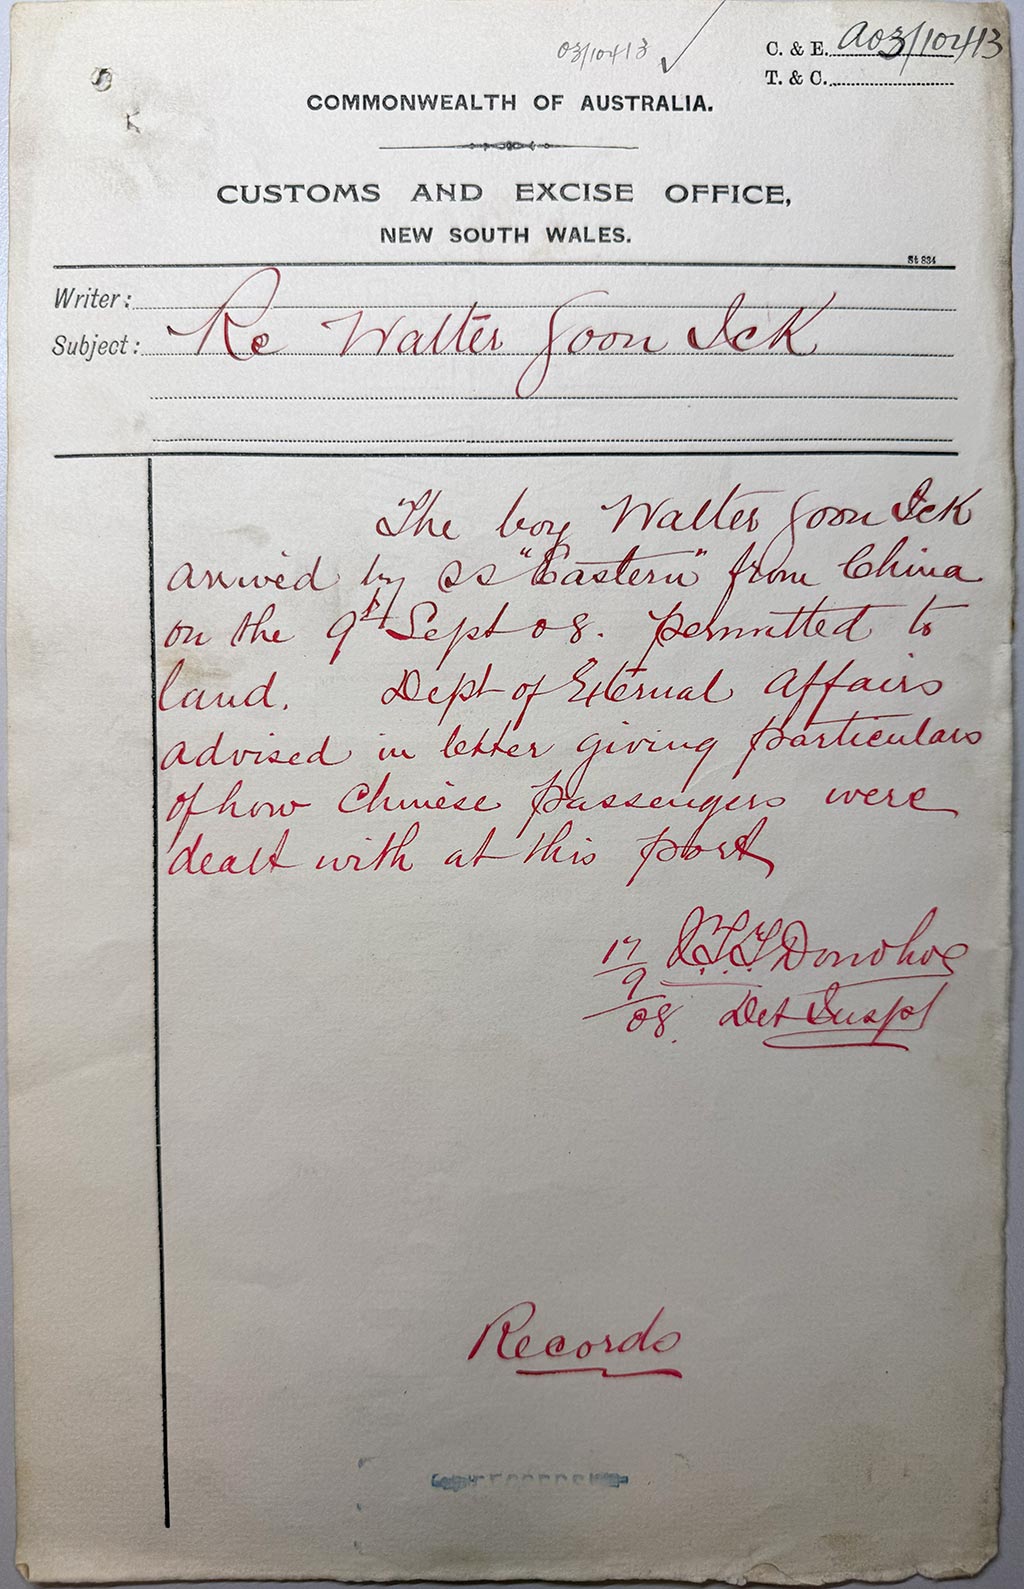 03/10413
C. & E. A03/10413
T. & C.
COMMONWEALTH OF AUSTRALIA.
CUSTOMS AND EXCISE OFFICE,
NEW SOUTH WALES.
St 834
Writer:
Subject: Re Walter Goon Ick
The boy Walter Goon Ick
arrived by SS "Eastern" from China
on the 9th Sept 08. permitted to
land. Dept of External Affairs
advised in letter giving particulars
of how Chinese passengers were
dealt with at this port
17/9/08. Donohoe
Det Inspr
Records